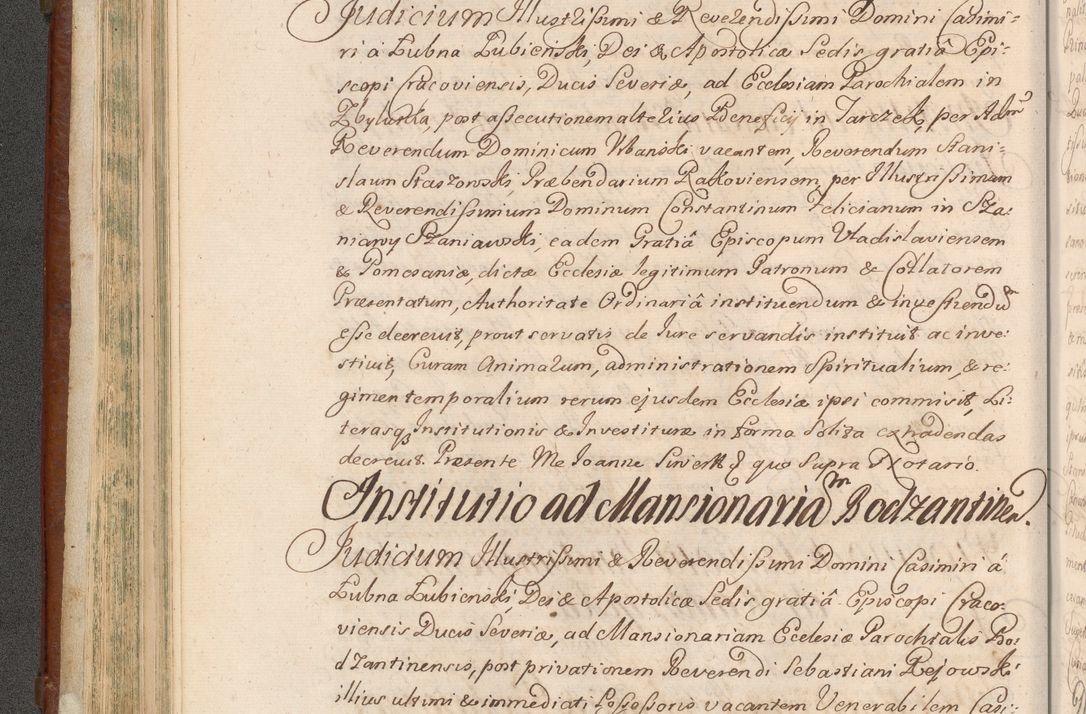 Judicium Illustrissimi & Reverendissimi Domini Casimi-
ri á Łubna Łubieński, Dei & Apostolicæ Sedis gratiâ Epi-
scopi Cracoviensis, Ducis Severiæ, ad Ecclesiam Parochialem in
post assecutionem alterius Beneficij in Tarczek, per Adm
Reverendum Dominicum Urbański vacantem, Reverendum Stani-
slaum Staszowski Præbendarium Rakoviensem, per Illustrissimum
& Reverendissimum Dominum Constantinum Felicianum in Sza-
niawy Szaniawski, eadem Gratiâ Episcopum Vladislaviensem
& Pomesaniæ, dictæ Ecclesiæ legitimum Patronum & Collatorem
Præsentatum, Authoritate Ordinariâ instituendum & investiendū
esse decrevit, prout servatis de Jure servandis instituit ac inve-
stivit, Curam Animarum, administrationem Spiritualium, & re-
gimen temporalium rerum ejusdem Ecclesiæ ipsi commisit, Li-
terasq₃ Institutionis & Investituræ in forma solita extradendas
decrevit. Præsente Me Joanne quo supra Notario.
Institutio ad Mansionariam Bodzantinen.
Judicium Illustrissimi & Reverendissimi Domini Casimiri á
Łubna Łubieński, Dei & Apostolicæ Sedis gratiâ Episcopi Craco-
viensis Ducis Severiæ, ad Mansionariam Ecclesiæ Parochialis Bo-
dzantinensis, post privationem Reverendi Sebastiani Rejowski
illius ultimi & immediati Possessoris vacantem Venerabilem Casi-